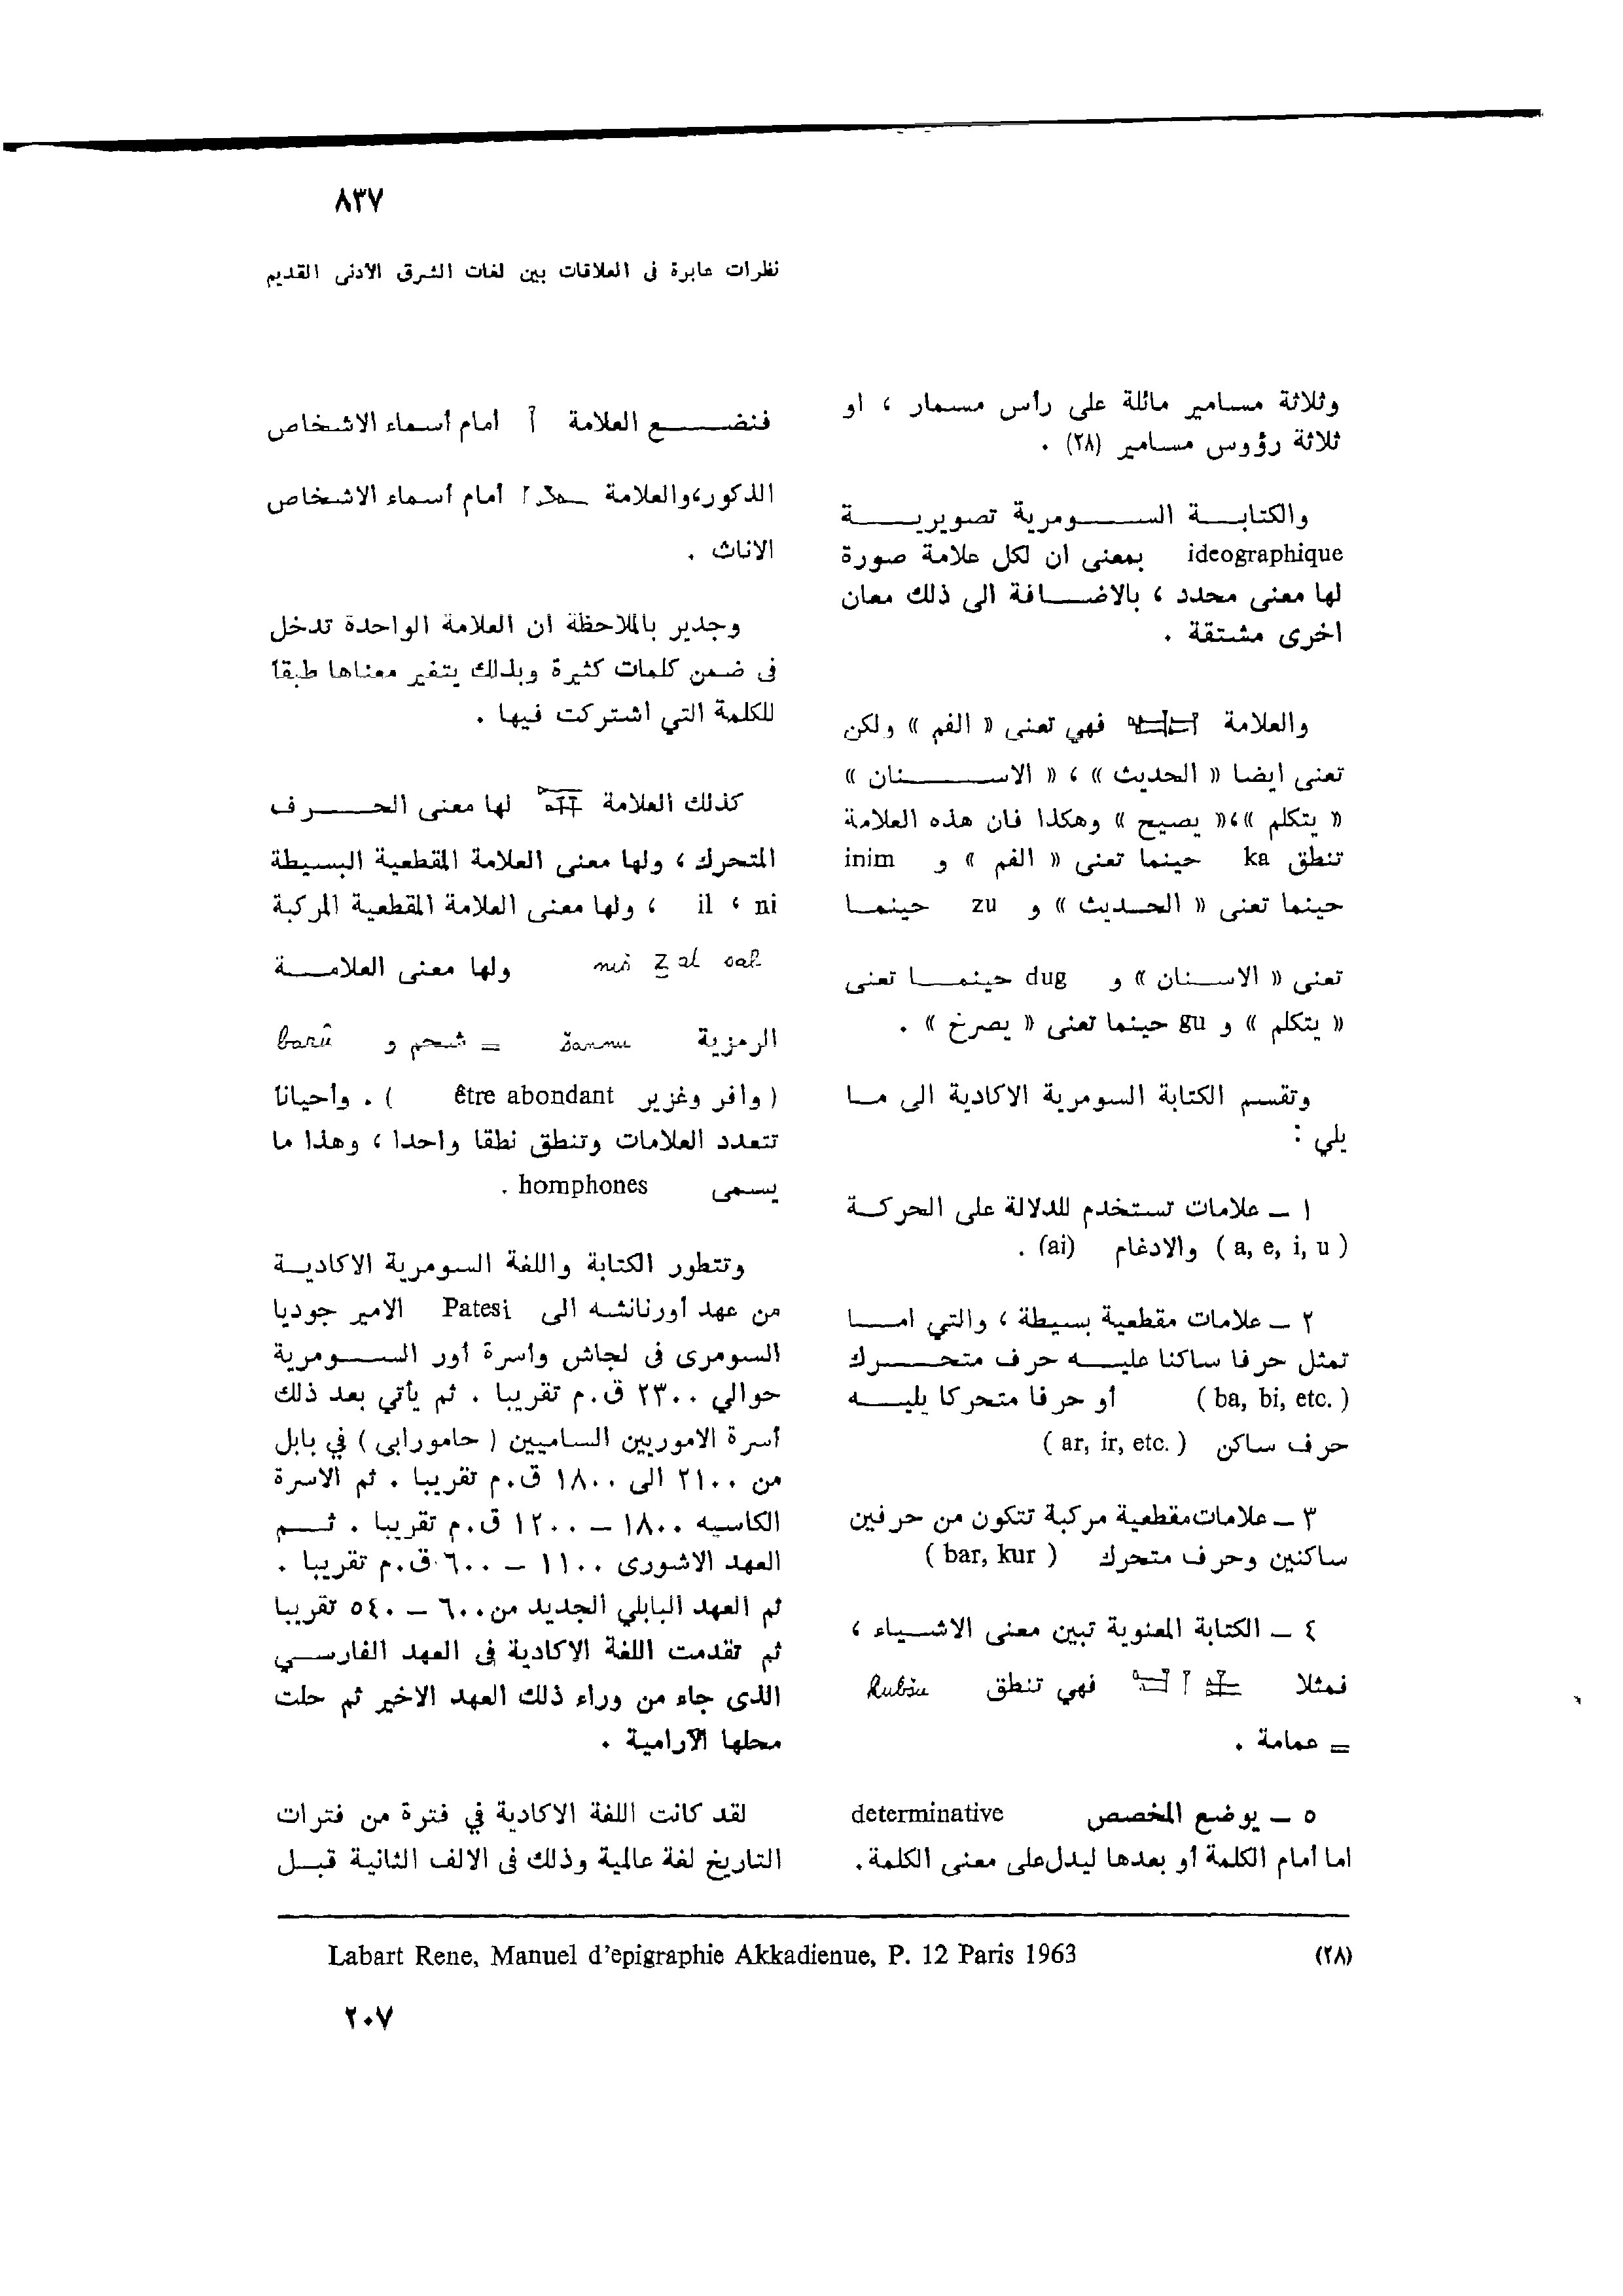 ٨٣٧
نظرات عابرة فى العلاقات بين لغات الشرق الأدنى القديم
وثلاثة مسامير مائلة على رأس مسمار ، او
ثلاثة رؤوس مسامير (٢٨) .
والكتابة السومرية تصويرية
ideographique بمعنى ان لكل علامة صورة
لها معنى محدد ، بالاضافة الى ذلك معان
اخرى مشتقة .
والعلامة فهي تعنى « الفم » ولكن
تعنى ايضا « الحديث » ، « الاسنان »
« يتكلم »،« يصيح » وهكذا فان هذه العلامة
تنطق ka حينما تعنى « الفم » و inim
حينما تعنى « الحديث » و zu حينما
تعنى « الاسنان » و dug حينما تعنى
« يتكلم » و gu حينما تعنى « يصرخ » .
وتقسم الكتابة السومرية الاكادية الى ما
يلي :
١ - علامات تستخدم للدلالة على الحركة
( a, e, i, u ) والادغام (ai) .
٢ - علامات مقطعية بسيطة ، والتي اما
تمثل حرفا ساكنا عليه حرف متحرك
( ba, bi, etc. ) أو حرفا متحركا يليه
حرف ساكن ( ar, ir, etc. )
٣ - علامات مقطعية مركبة تتكون من حرفين
ساكنين وحرف متحرك ( bar, kur )
٤ - الكتابة المعنوية تبين معنى الاشياء ،
فمثلا فهي تنطق
= عمامة .
٥ - يوضع المخصص determinative
اما أمام الكلمة أو بعدها ليدل على معنى الكلمة .
فنضع العلامة أمام أسماء الاشخاص
الذكور، والعلامة أمام أسماء الاشخاص
الاناث .
وجدير بالملاحظة ان العلامة الواحدة تدخل
فى ضمن كلمات كثيرة وبذلك يتغير معناها طبقا
للكلمة التي اشتركت فيها .
كذلك العلامة لها معنى الحرف
المتحرك ، ولها معنى العلامة المقطعية البسيطة
il ، ni ، ولها معنى العلامة المقطعية المركبة
zal sal ولها معنى العلامة
الرمزية šamnu = شحم و barû
( وافر وغزير être abondant ) . وأحيانا
تتعدد العلامات وتنطق نطقا واحدا ، وهذا ما
يسمى homphones .
وتتطور الكتابة واللغة السومرية الاكادية
من عهد أورنانشه الى Patesi الامير جوديا
السومرى فى لجاش وأسرة أور السومرية
حوالي ٢٣٠٠ ق.م تقريبا . ثم يأتي بعد ذلك
أسرة الاموريين الساميين ( حامورابى ) في بابل
من ٢١٠٠ الى ١٨٠٠ ق.م تقريبا . ثم الاسرة
الكاسيه ١٨٠٠ - ١٢٠٠ ق.م تقريبا . ثم
العهد الاشورى ١١٠٠ - ٦٠٠ ق.م تقريبا .
ثم العهد البابلي الجديد من ٦٠٠ - ٥٤٠ تقريبا
ثم تقدمت اللغة الاكادية فى العهد الفارسي
الذى جاء من وراء ذلك العهد الاخير ثم حلت
محلها الآرامية .
لقد كانت اللغة الاكادية في فترة من فترات
التاريخ لغة عالمية وذلك فى الالف الثانية قبل
(٢٨) Labart Rene, Manuel d'epigraphie Akkadienue, P. 12 Paris 1963
٢٠٧